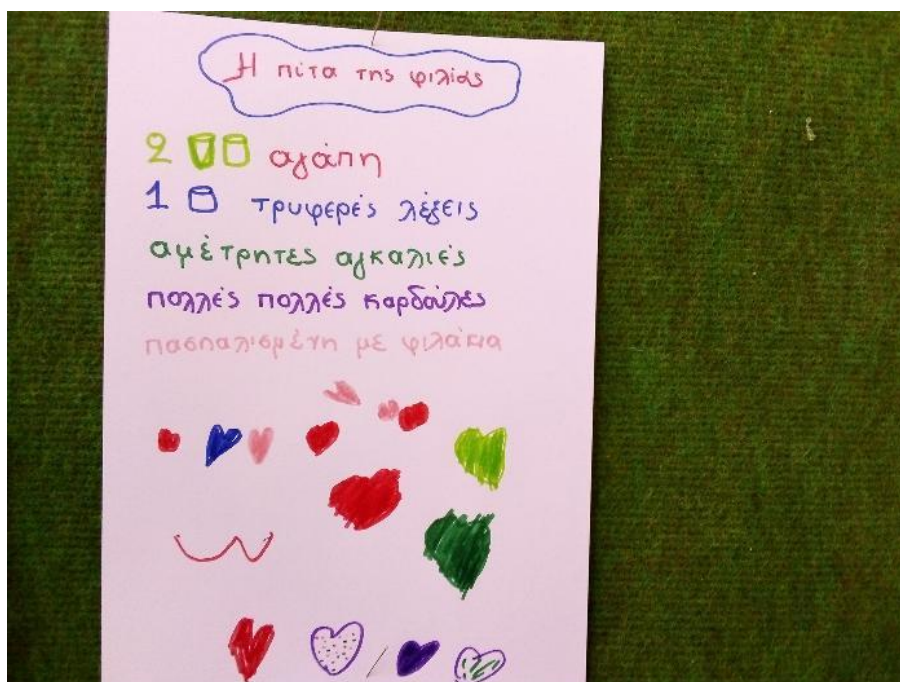 Η πίτα της φιλίας
2 αγάπη
1 τρυφερές λέξεις
αμέτρητες αγκαλιές
πολλές πολλές καρδούλες
πασπαλισμένη με φιλάκια